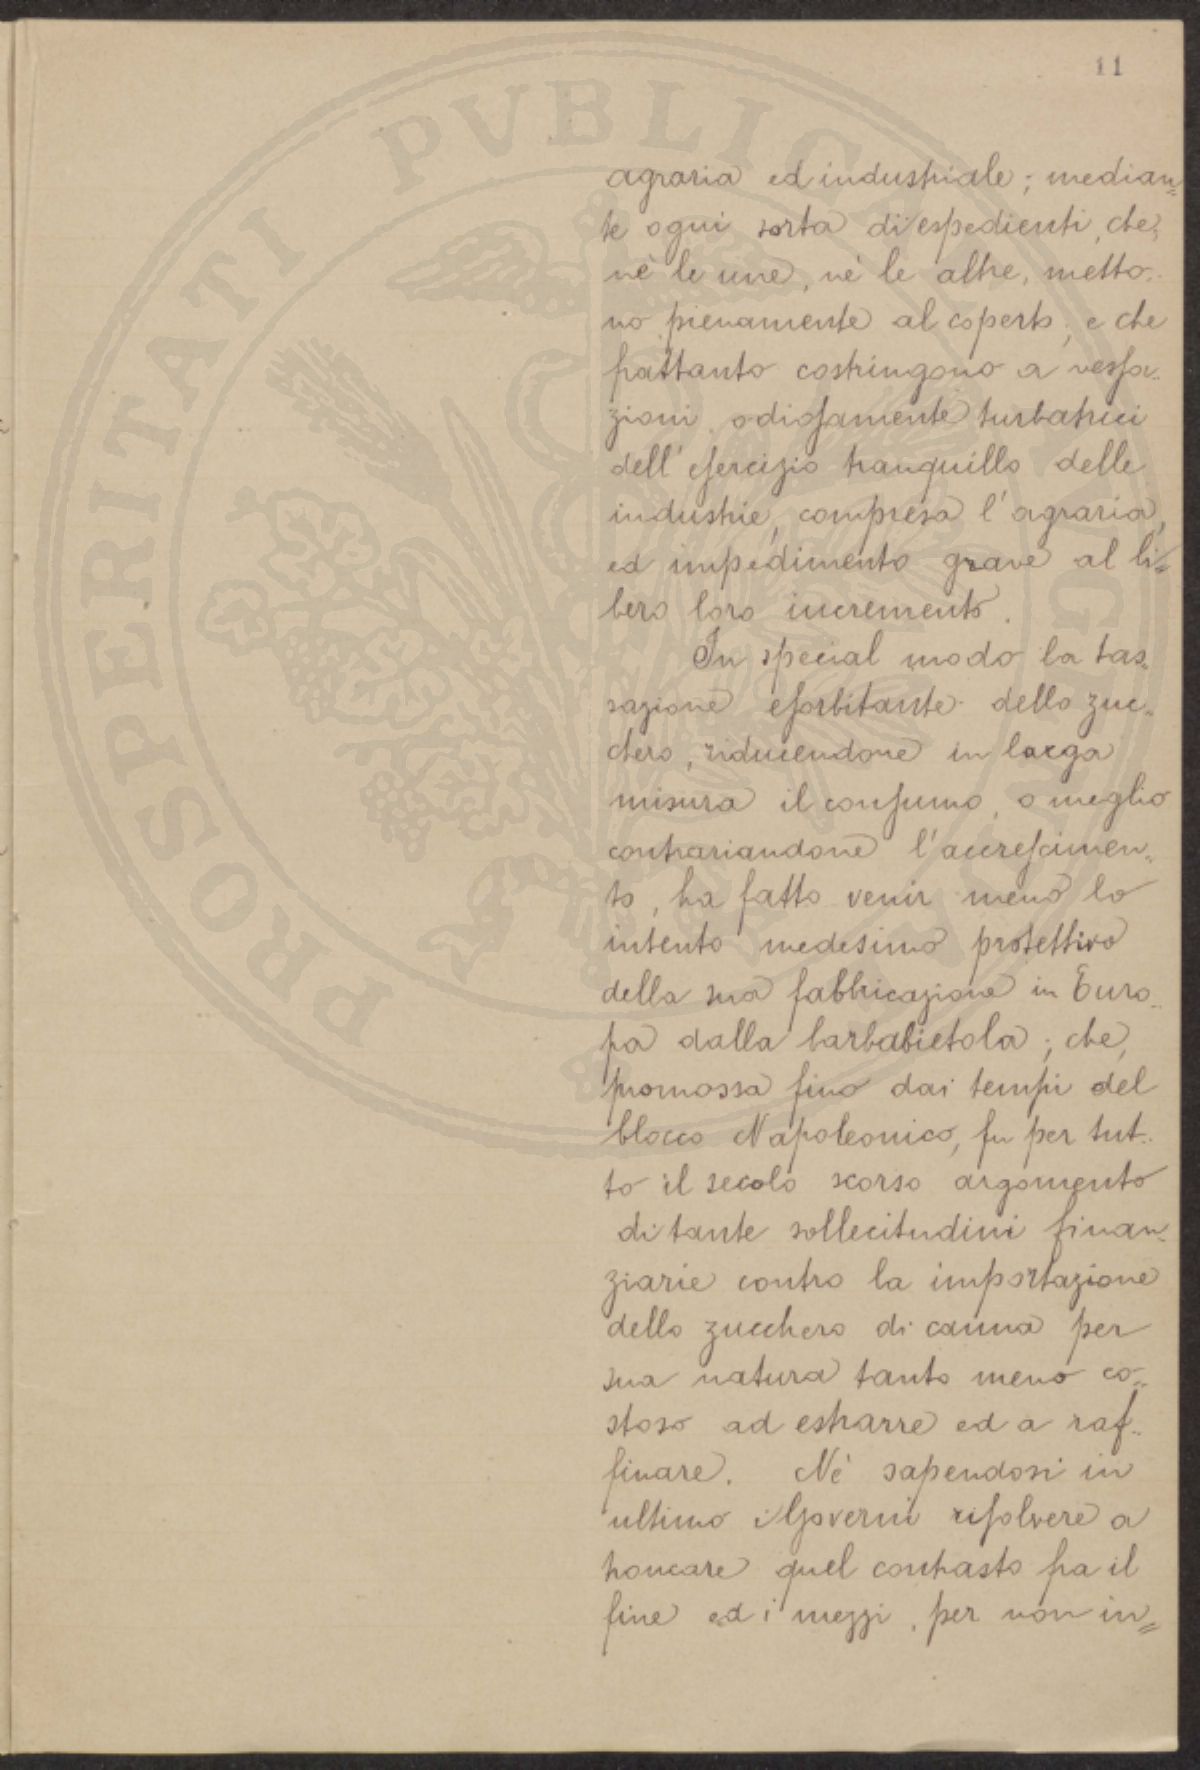 11
PROSPERITATI PVBLICAE
agraria ed industriale; median=
te ogni sorta di espedienti, che,
nè le une, nè le altre, metto-
no pienamente al coperto; e che
frattanto costringono a vessa-
zioni odiosamente turbatrici
dell'esercizio tranquillo delle
industrie, compresa l'agraria,
ed impedimento grave al li=
bero loro incremento.
In special modo la tas-
sazione esorbitante dello zuc-
chero, riducendone in larga
misura il consumo, o meglio
contrariandone l'accrescimen-
to, ha fatto venir meno lo
intento medesimo protettivo
della sua fabbricazione in Euro-
pa dalla barbabietola; che,
promossa fino dai tempi del
blocco Napoleonico, fu per tut-
to il secolo scorso argomento
di tante sollecitudini finan-
ziarie contro la importazione
dello zucchero di canna per
sua natura tanto meno co-
stoso ad estrarre ed a raf-
finare. Nè sapendosi in
ultimo i Governi risolvere a
troncare quel contrasto fra il
fine ed i mezzi, per non in=